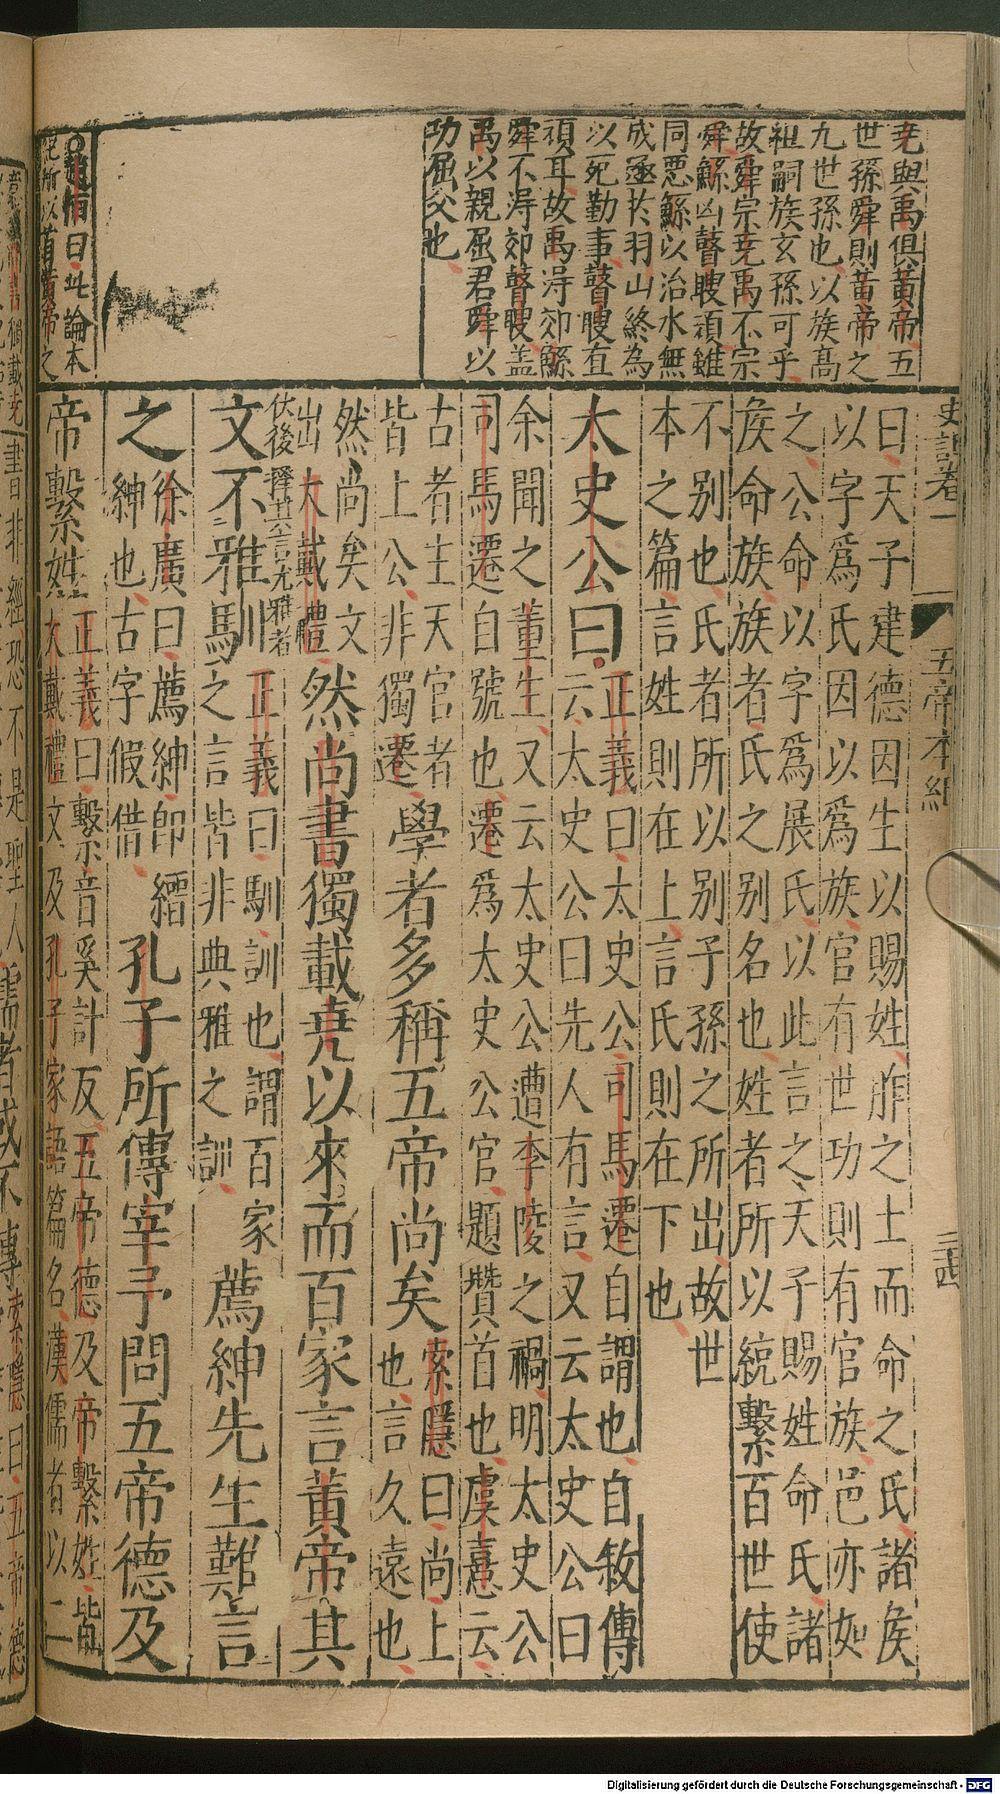 堯與禹俱黃帝五
世孫舜則黃帝之
九世孫也以族高
祖嗣族玄孫可乎
故舜宗堯禹不宗
舜鯀凶瞽瞍頑雖
同惡鯀以治水無
成殛於羽山終為
以死勤事瞽瞍直
頑耳故禹得郊鯀
舜不得郊瞽瞍蓋
禹以親屈君舜以
功屈父也
曰此論本
史記卷一
五帝本紀
曰天子建德因生以賜姓胙之土而命之氏諸侯
以字爲氏因以爲族官有世功則有官族邑亦如
之公命以字爲展氏以此言之天子賜姓命氏諸
侯命族族者氏之别名也姓者所以統繫百世使
不别也氏者所以别子孫之所出故世
本之篇言姓則在上言氏則在下也
太史公曰
正義曰太史公司馬遷自謂也自敘傳
云太史公曰先人有言又云太史公曰
余聞之董生又云太史公遭李陵之禍明太史公
司馬遷自號也遷爲太史公官題贊首也虞憙云
古者主天官者
皆上公非獨遷
學者多稱五帝尚矣
索隱曰尚上
也言久遠也
然尚矣文
出大戴禮
然尚書獨載堯以來而百家言黃帝其
文不雅馴
正義曰馴訓也謂百家
之言皆非典雅之訓
薦紳先生難言
之
徐廣曰薦紳即縉
紳也古字假借
孔子所傳宰予問五帝德及
帝繫姓
正義曰繫音奚計反五帝德及帝繫姓皆
大戴禮文及孔子家語篇名漢儒者以二
Digitalisierung gefördert durch die Deutsche Forschungsgemeinschaft - DFG